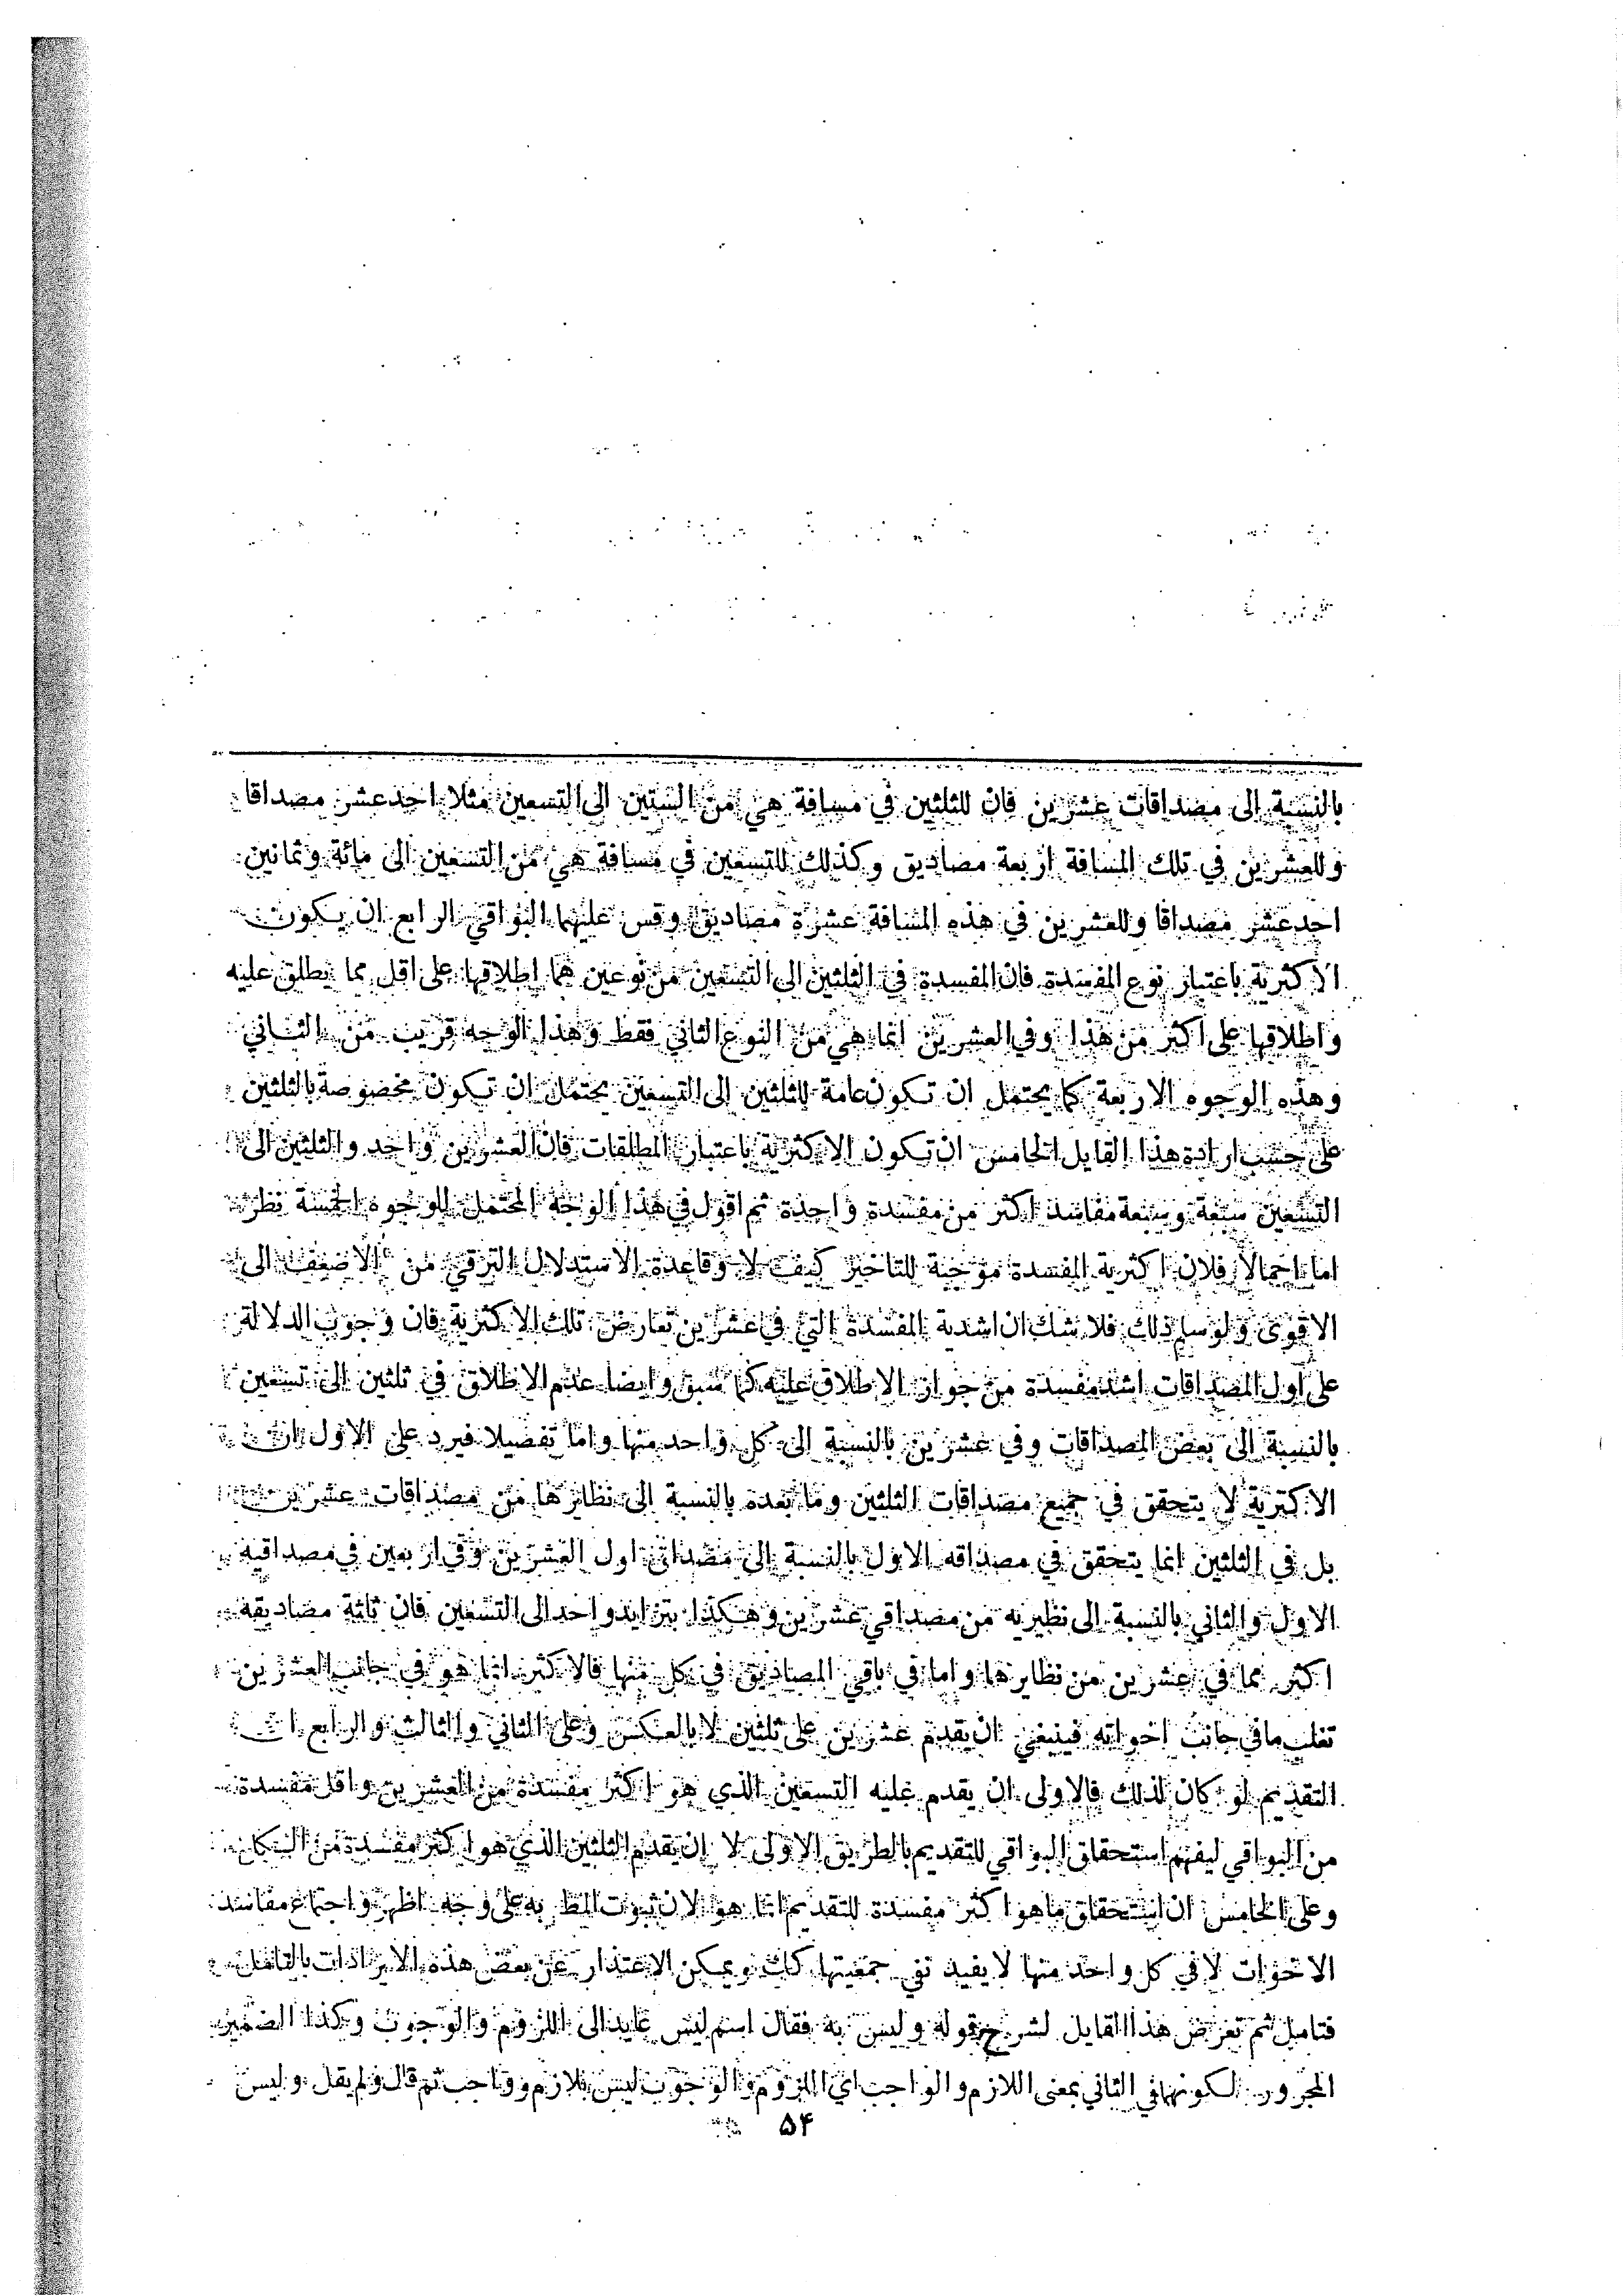 بالنسبة إلى مصداقات عشرين فان للثلثين في مسافة هي من الستين الى التسعين مثلا احد عشر مصداقا
وللعشرين في تلك المسافة اربعة مصاديق وكذلك للتسعين في مسافة هي من التسعين الى مائة وثمانين
احد عشر مصداقا وللعشرين في هذه المسافة عشرة مصاديق وقس عليهما البواقي الرابع ان يكون
الاكثرية باعتبار نوع المفسدة فان المفسدة في الثلثين الى التسعين من نوعين هما اطلاقها على اقل مما يطلق عليه
واطلاقها على اكثر من هذا وفي العشرين انما هي من النوع الثاني فقط وهذا الوجه قريب من الثاني
وهذه الوجوه الاربعة كما يحتمل ان تكون عامة للثلثين الى التسعين يحتمل ان تكون مخصوصة بالثلثين
على حسب ارادة هذا القايل الخامس ان تكون الاكثرية باعتبار المطلقات فان العشرين واحد والثلثين الى
التسعين سبعة وسبعة مفاسد اكثر من مفسدة واحدة ثم اقول في هذا الوجه المحتمل للوجوه الخمسة نظر
اما اجمالا فلان اكثرية المفسدة موجبة للتاخير كيف لا وقاعدة الاستدلال الترقي من الاضعف الى
الاقوى ولو سلم ذلك فلا شك ان اشدية المفسدة التي في عشرين تعارض تلك الاكثرية فان وجوب الدلالة
على اول المصداقات اشد مفسدة من جواز الاطلاق عليه كما سبق وايضا عدم الاطلاق في ثلثين الى تسعين
بالنسبة الى بعض المصداقات وفي عشرين بالنسبة إلى كل واحد منها واما تفصيلا فيرد على الاول ان
الاكثرية لا يتحقق في جميع مصداقات الثلثين وما بعده بالنسبة الى نظايرها من مصداقات عشرين
بل في الثلثين انما يتحقق في مصداقه الاول بالنسبة إلى مصداق اول العشرين وفي اربعين في مصداقيه
الاول والثاني بالنسبة الى نظيريه من مصداقي عشرين وهكذا يتزايد واحد الى التسعين فان ثمانية مصاديقه
اكثر مما في عشرين من نظايرها واما في باقي المصاديق في كل منها فالاكثر انما هو في جانب العشرين
تغلب ما في جانب اخواته فينبغي ان يقدم عشرين على ثلثين لا بالعكس وعلى الثاني والثالث والرابع ان
التقديم لو كان لذلك فالاولى ان يقدم عليه التسعين الذي هو اكثر مفسدة من العشرين واقل مفسدة
من البواقي ليفهم استحقاق البواقي للتقديم بالطريق الاولى لا ان يقدم الثلثين الذي هو اكثر مفسدة من الكل
وعلى الخامس ان استحقاق ما هو اكثر مفسدة للتقديم انما هو لان ثبوت المط به على وجه اظهر واجتماع مفاسد
الاخوات لا في كل واحد منها لا يفيد نفي جمعيتها كك ويمكن الاعتذار عن بعض هذه الايرادات بالتامل
فتامل ثم تعرض هذا القايل لشرح قوله وليس به فقال اسم ليس عايد الى اللزوم والوجوب وكذا الضمير
المجرور لكونهما في الثاني بمعنى اللازم والواجب اي اللزوم والوجوب ليس بلازم وواجب ثم قال ولم يقل وليس
۵۴